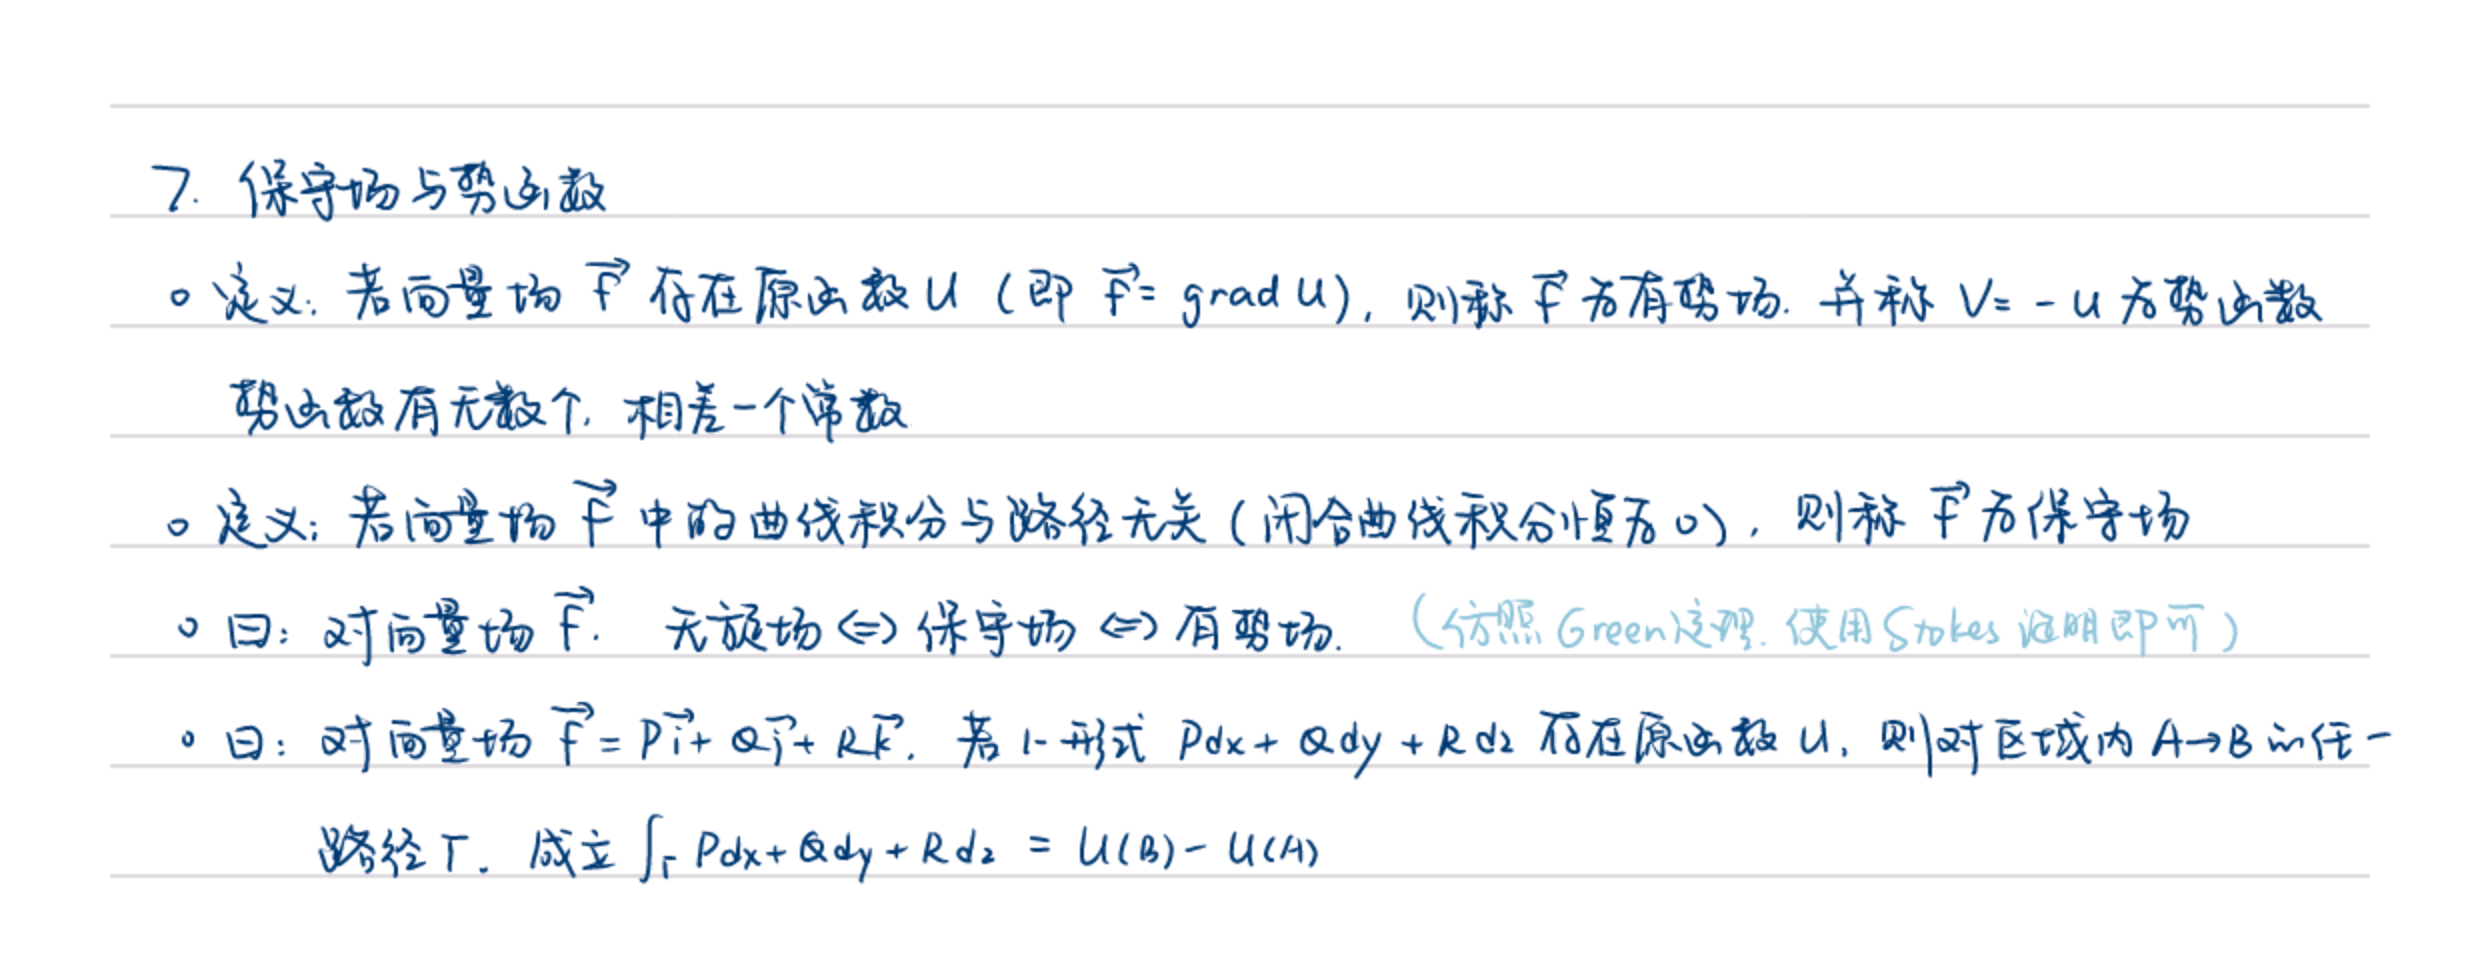 7. 保守场与势函数
。定义: 若向量场 $\vec{F}$ 存在原函数 U (即 $\vec{F}$ = grad U), 则称 $\vec{F}$ 为有势场. 并称 V= - U 为势函数
势函数有无数个, 相差一个常数
。定义: 若向量场 $\vec{F}$ 中的曲线积分与路径无关 (闭合曲线积分恒为0), 则称 $\vec{F}$ 为保守场
。曰: 对向量场 $\vec{F}$. 无旋场 <=> 保守场 <=> 有势场. (仿照 Green 定理. 使用 Stokes 证明即可)
。曰: 对向量场 $\vec{F}$ = P$\vec{i}$ + Q$\vec{j}$ + R$\vec{k}$. 若 1-形式 Pdx + Qdy + Rdz 存在原函数 U, 则对区域内 A→B 的任一
路径 Γ. 成立 $\int_Γ$ Pdx + Qdy + Rdz = U(B) - U(A)